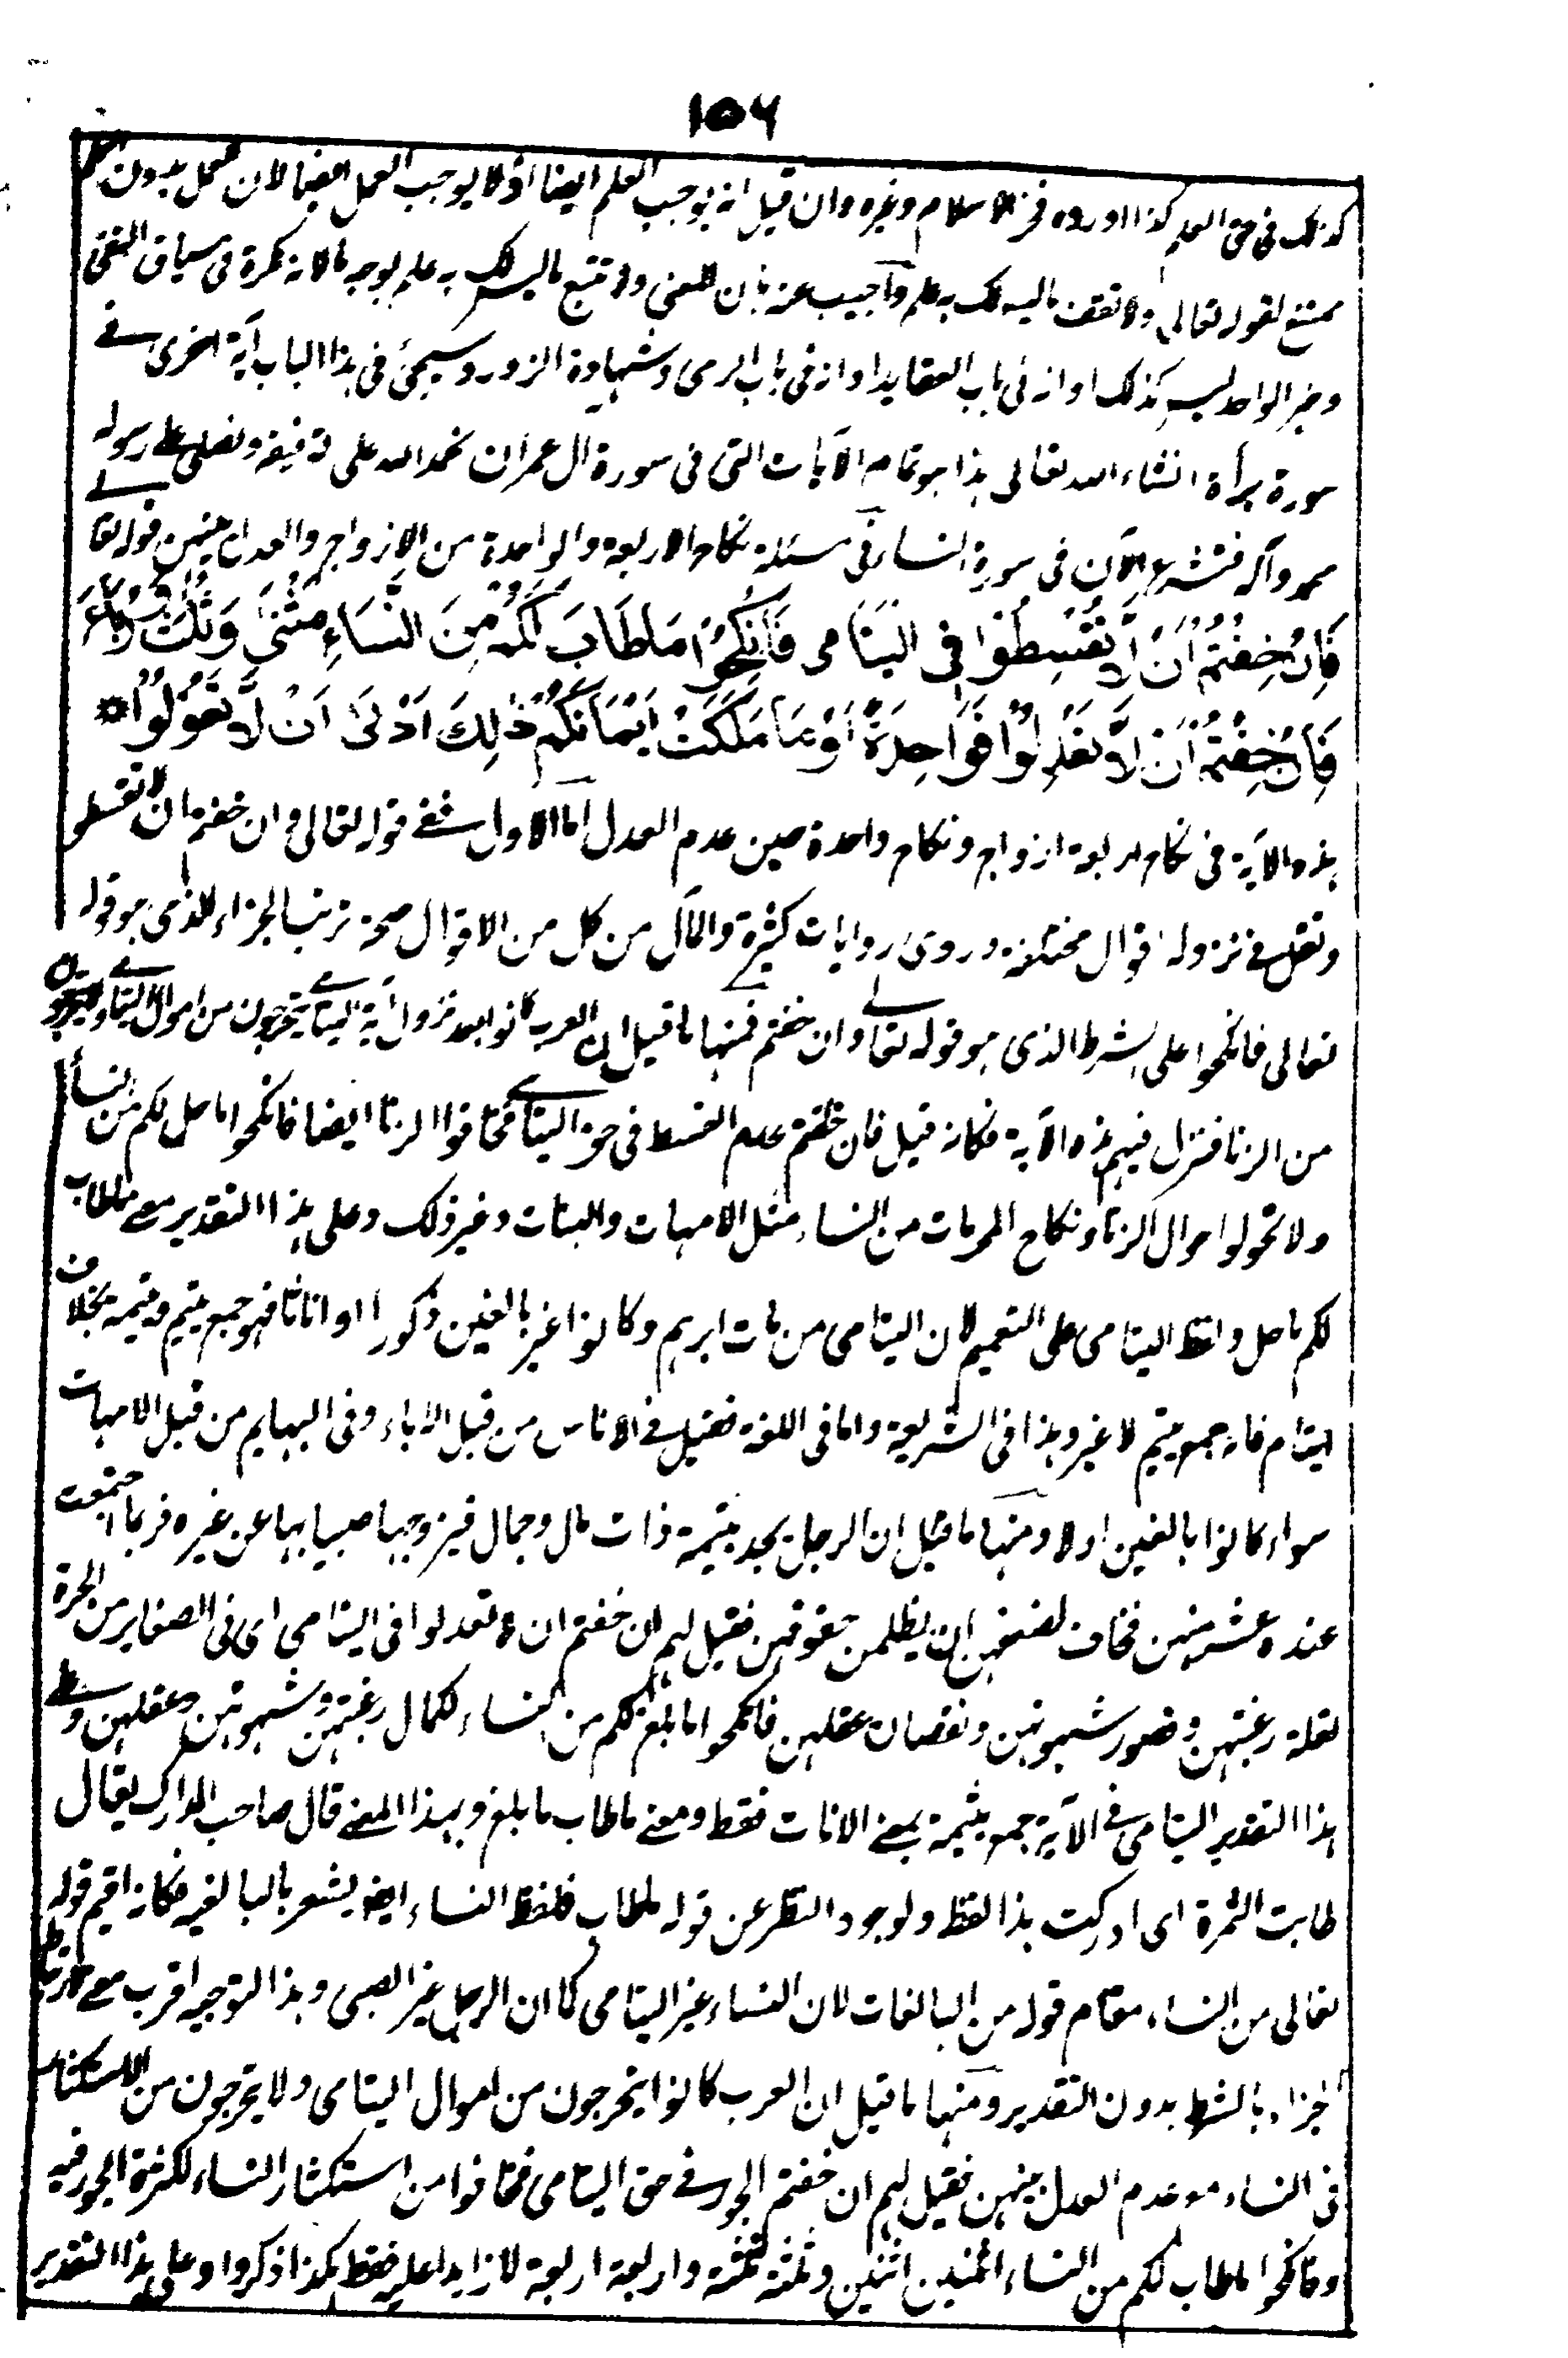 ١٥٦
كذلك فى حق العلم كذا اورده فخر الاسلام وغيره وان قيل انه يوجب العلم ايضا اذ لا يوجب العمل ايضا لان العمل بدون العلم
ممتنع لقوله تعالى ولا تقف ما ليس لك به علم واجيب عنه بان المعنى ولا تتبع ما ليس لك به علم بوجه ما لانه نكرة فى سياق النفى
وخبر الواحد ليس كذلك او انه فى باب العقايد او انه فى باب الرمى وشهادة الزور وسيجئ فى هذا الباب آية اخرى فے
سورة برأة انشاء الله تعالى هذا هو تمام الآيات التى فى سورة ال عمران نحمد الله على توفيقه ونصلى على رسوله
محمد وآله فنشرع الآن فى سورة النساء فى مسئلة نكاح الاربعة والواحدة من الازواج والعدل بينهن قوله تعالے
فَاِنْ خِفْتُمْ اَنْ لَّا تُقْسِطُوْا فِى الْيَتَامٰى فَانْكِحُوْا مَا طَابَ لَكُمْ مِّنَ النِّسَاءِ مَثْنٰى وَثُلٰثَ وَرُبَاعَ
فَاِنْ خِفْتُمْ اَنْ لَّا تَعْدِلُوْا فَوَاحِدَةً اَوْ مَا مَلَكَتْ اَيْمَانُكُمْ ذٰلِكَ اَدْنٰى اَنْ لَّا تَعُوْلُوْا *
هذه الآية فى نكاح اربعة ازواج ونكاح واحدة حين عدم العدل اما الاول ففے قوله تعالى وان خفتم ان لا تقسطوا
ونقل فے نزوله اقوال مختلفة وروى روايات كثيرة والمآل من كل من الاقوال صحة ترتب الجزاء الذى هو قوله
تعالى فانكحوا على الشرط الذى هو قوله تعالے وان خفتم فمنها ما قيل ان العرب كانوا بعد نزول آية اليتامے يتحرجون من اموال اليتامے ولا يتحرجون
من الزنا فنزل فيهم هذه الآية فكانه قيل فان خفتم عدم القسط فى حق اليتامے فخافوا الزنا ايضا فانكحوا ما حل لكم من النساء
ولا تحولوا حوال الزنا ونكاح المحرمات من النساء مثل الامهات والبنات وغير ذلك وعلى هذا التقدير معے ما طاب
لكم ما حل ولفظ اليتامى على التعميم لان اليتامى من مات ابوهم وكانوا غير بالغين ذكورا او اناثا فهو جمع يتيم ويتيمة بخلاف
ايتام فانه جمع يتيم لا غير وهذا فى الشريعة واما فى اللغة فقيل فے الاناس من قبل الاباء وفى البهايم من قبل الامهات
سواء كانوا بالغين اولا ومنها ما قيل ان الرجل يجد يتيمة ذات مال وجمال فيزوجها صيانتها عن غيره فربما اجتمعت
عنده عشر منهن فخاف لضعفهن ان يظلمن حقوقهن فقيل لهم ان خفتم ان لا تعدلوا فى اليتامى اى فى الصغاير من الحرة
لقلة رغبتهن وقصور شهوتهن ونقصان عقلهن فانكحوا ما بلغ لكم من النساء لكمال رغبتهن وشهوتهن وعقلهن وعلى
هذا التقدير اليتامى فے الآية جمع يتيمة بمعنے الاناث فقط ومعنے ما طاب ما بلغ وبهذا المعنے قال صاحب المدارك يقال
طابت الثمرة اى ادركت هذا لفظه ولوجود النظر عن قوله ما طاب فلفظ النساء ايضا يشعر بالبالغية فكانه اقيم قوله
تعالى من النساء مقام قوله من البالغات لان النساء غير اليتامى كما ان الرجل غير الصبى وهذا التوجيه اقرب معے
الجزاء بالشرط بدون التقدير ومنها ما قيل ان العرب كانوا يتحرجون من اموال اليتامى ولا يتحرجون من الاستكثار
فى النساء مع عدم العدل بينهن فقيل لهم ان خفتم الجور فے حق اليتامى فخافوا من استكثار النساء لكثرة الجور فيه
وفانكحوا ما طاب لكم من النساء اثنين اثنين وثلثة ثلثة واربعة اربعة لا زايدا عليه فقط هكذا ذكروا وعلى هذا التقدير